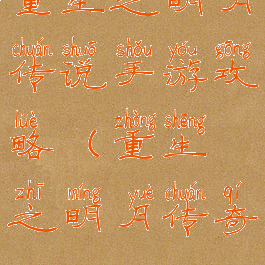 重生之明月
chuán shuō shǒu yóu gōng
传说手游攻
lüè zhòng shēng
略（重生
zhī míng yuè chuán qí
之明月传奇